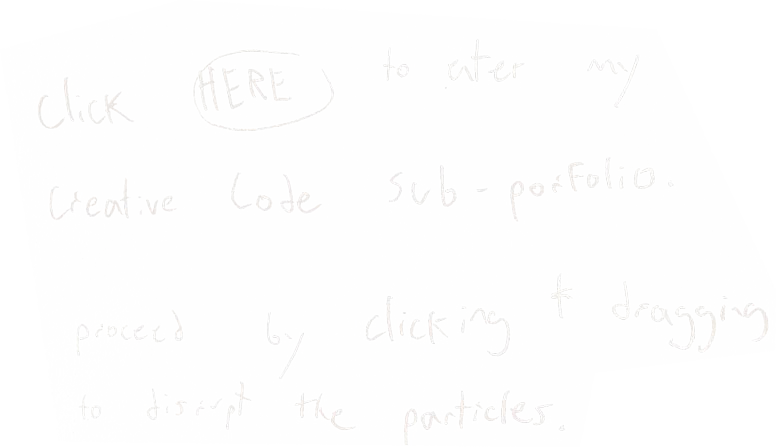 click HERE to enter my
Creative Code Sub-porfolio.
proceed by clicking + dragging
to disrupt the particles.